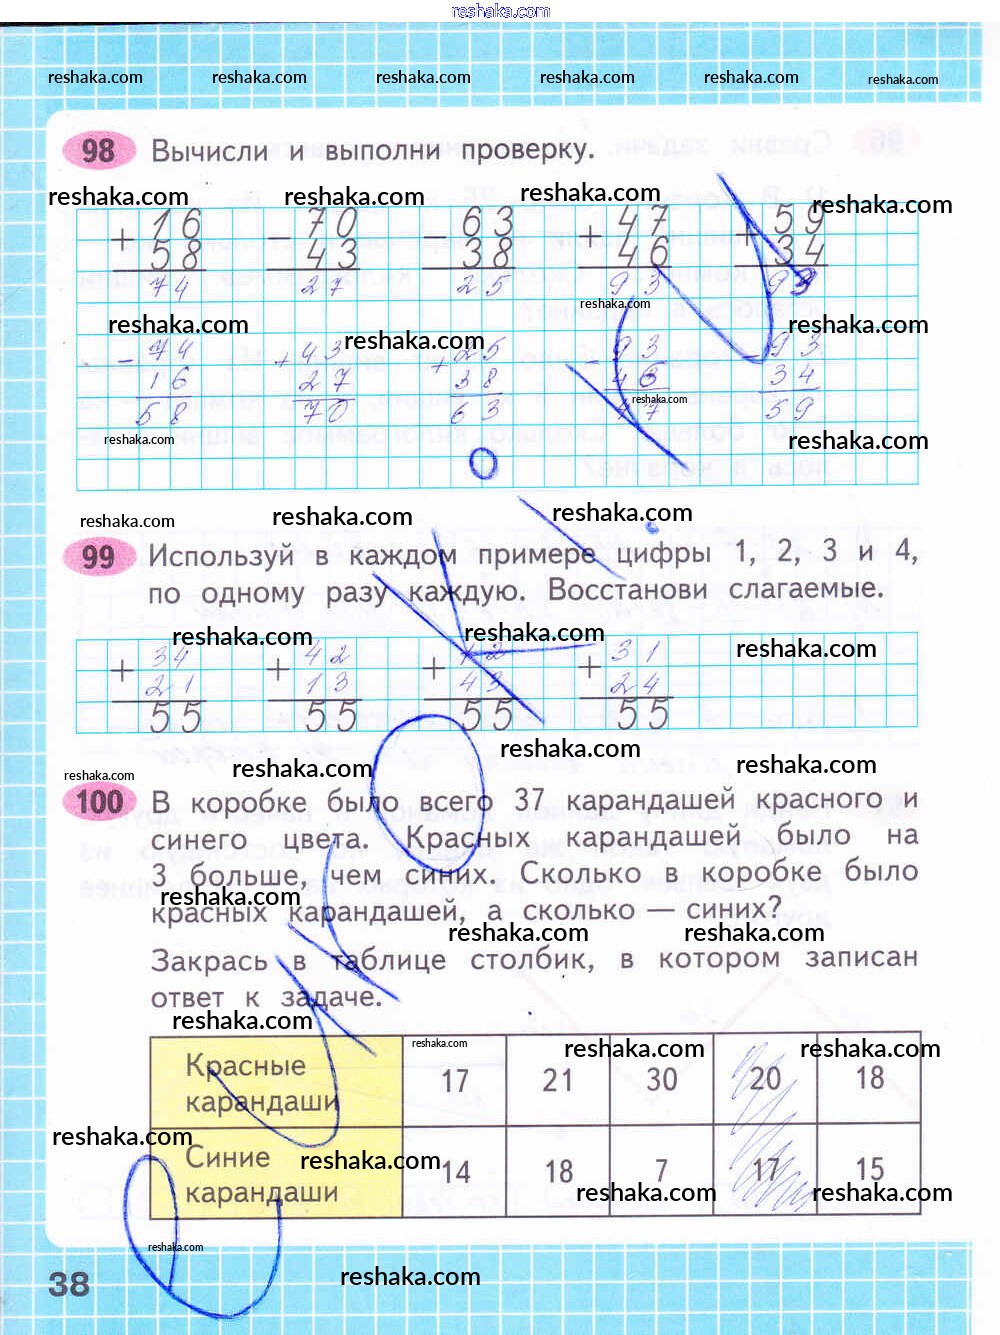 reshaka.com
reshaka.com reshaka.com reshaka.com reshaka.com reshaka.com reshaka.com
98 Вычисли и выполни проверку.
reshaka.com reshaka.com reshaka.com reshaka.com
+ 16 - 70 - 63 + 47 + 59
58 43 38 46 34
74 27 25 93 93
reshaka.com
reshaka.com reshaka.com reshaka.com
- 74 + 43 + 25 - 93 - 93
16 27 38 46 34
58 70 63 47 59
reshaka.com
reshaka.com reshaka.com
reshaka.com reshaka.com reshaka.com
99 Используй в каждом примере цифры 1, 2, 3 и 4,
по одному разу каждую. Восстанови слагаемые.
reshaka.com reshaka.com reshaka.com
+ 34 + 42 + 12 + 31
21 13 43 24
55 55 55 55
reshaka.com reshaka.com reshaka.com reshaka.com
100 В коробке было всего 37 карандашей красного и
синего цвета. Красных карандашей было на
3 больше, чем синих. Сколько в коробке было
reshaka.com
красных карандашей, а сколько — синих?
reshaka.com reshaka.com
Закрась в таблице столбик, в котором записан
ответ к задаче.
reshaka.com reshaka.com reshaka.com reshaka.com
Красные карандаши 17 21 30 20 18
reshaka.com reshaka.com
Синие карандаши 14 18 7 17 15
reshaka.com reshaka.com
reshaka.com
38 reshaka.com